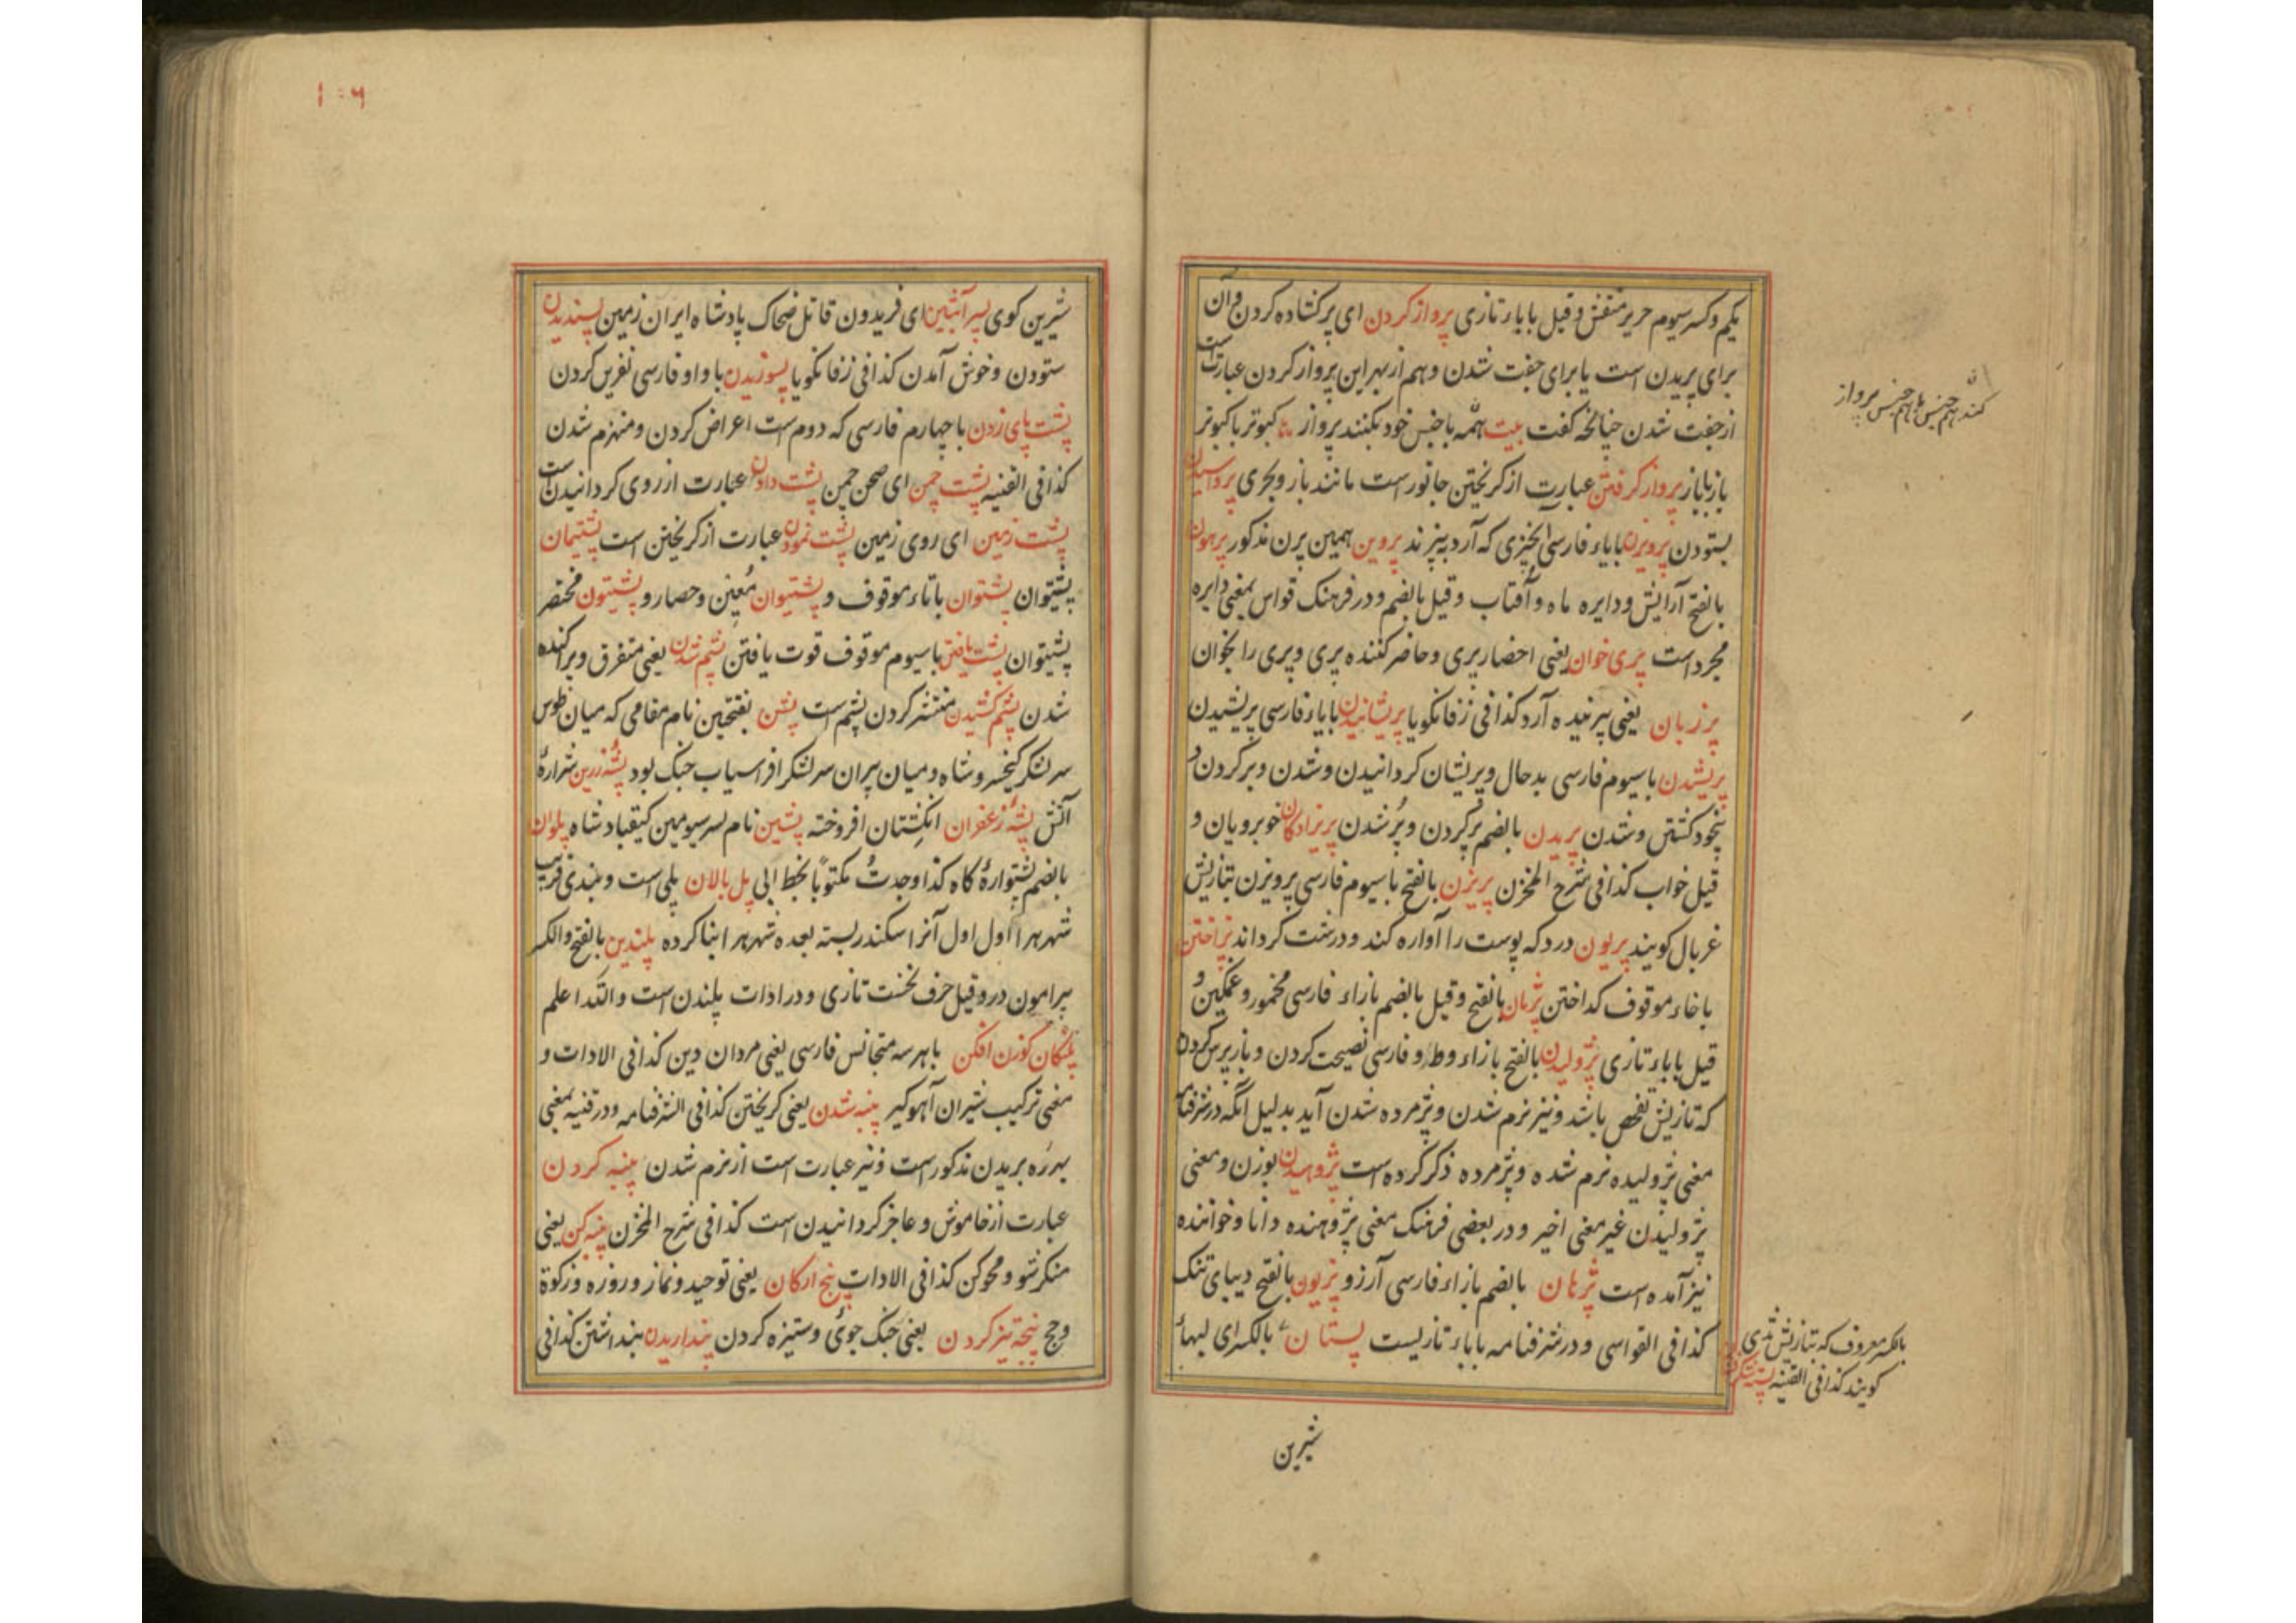 یکم و کسر سیوم حریر منقش و قیل با باء تازی پرواز کردن ای پر کشاده کردن و آن
برای پریدن است یا برای جفت شدن و هم از بهر این پرواز کردن عبارت است
از جفت شدن چنانکه گفت بیت همه با جنس خود بکنند پرواز کبوتر با کبوتر
باز با باز پرواز گرفتن عبارت از گریختن جانور است مانند باز و بحری پرواسیدن
بستودن پرویزن با یاء فارسی آنچیزی که آرد بیزند پروین همین پرن مذکور پرهون
بالفتح آرایش و دایره ماه و آفتاب و قیل بالضم و در فرهنک قواس بمعنی دایره
مجرد است پری خوان یعنی احضار پری و حاضر کننده پری و پری را بخوان
یعنی بیزنده آرد کذا فی زفانگویا پریشانیدن با یاء فارسی پریشیدن
پریشدن با سیوم فارسی بدحال و پریشان کردانیدن و شدن و بر کردن و
بیخود کشتن و شدن پریدن بالضم پر کردن و پر شدن پریزادگان خوبرویان و
قیل خواب کذا فی شرح المخزن پریزن بالفتح با سیوم فارسی پرویزن بتازیش
غربال کویند پریون درد که پوست را آواره کند و درشت کرداند پزاختن
با خاء موقوف کداختن پژمان بالفتح و قیل بالضم با زاء فارسی مخمور و غمکین و
قیل با باء تازی پژولیدن بالفتح با زاء و واو فارسی نصیحت کردن و باز پرس کردن
که تازیش تفحص باشد و نیز نرم شدن و پژمرده شدن آید بدلیل آنکه در شرفنامه
معنی پژولیده نرم شده و پژمرده ذکر کرده است پژوهیدن بوزن و معنی
پژولیدن غیر معنی اخیر و در بعضی فرهنک معنی پژوهنده دانا و خواننده
نیز آمده است پژهان بالضم با زاء فارسی آرزو پژیون بالفتح دیبای تنک
کذا فی القواسی و در شرفنامه با باء تازیست پستان بالکسر ای لبهاء
شیرین
کند هم جنس با هم جنس پرواز
بالکسر معروف که بتازیش ثدی
کویند کذا فی القنیه
۱۰۶
شیرین کوی پسر آبتین ای فریدون قاتل ضحاک پادشاه ایران زمین پسندیدن
ستودن و خوش آمدن کذا فی زفانگویا پسوزیدن با واو فارسی نفرین کردن
پشت پای زدن با چهارم فارسی که دوم است اعراض کردن و منهزم شدن
کذا فی القنیه پشت چمن ای صحن چمن پشت دادن عبارت از روی کردانیدن است
پشت زمین ای روی زمین پشت نمودن عبارت از گریختن است پشتیمان
پشتیوان پشتوان با تاء موقوف و پشتیوان معین و حصار و پشتیون مختصر
پشتیوان پشت یافتن با سیوم موقوف قوت یافتن پشم شدن یعنی متفرق و پراکنده
شدن پشم کشیدن منتشر کردن پشم است پشن بفتحین نام مقامی که میان طوس
سر لشکر کیخسرو شاه و میان پیران سر لشکر افراسیاب جنک بود پشه زرین شراره
آتش پشه زعفران انکشتان افروخته پشین نام پسر سیومین کیقباد شاه پلوان
بالضم پشتواره کاه کذا وجدت مکتوبا بخط ابی پل بالان پلی است و بندی قریب
شهر هرا اول اول آنرا سکندر بسته بعده شهر هرا بنا کرده پلندین بالفتح والکسر
پیرامون در و قیل حرف نخست تازی و در ادات پلندن است والله اعلم
پلنکان کوزن افکن با هر سه متجانس فارسی یعنی مردان دین کذا فی الادات و
معنی ترکیب شیران آهوکیر پنبه شدن یعنی کریختن کذا فی الشرفنامه و در قنیه بمعنی
بهرزه بریدن مذکور است و نیز عبارت است از نرم شدن پنبه کردن
عبارت از خاموش و عاجز کردانیدن است کذا فی شرح المخزن پنبه کن یعنی
منکر شو و محو کن کذا فی الادات پنج ارکان یعنی توحید و نماز و روزه و زکوة
و حج پنجه تیز کردن یعنی جنک جوئی و ستیزه کردن پنداریدن پنداشتن کذا فی